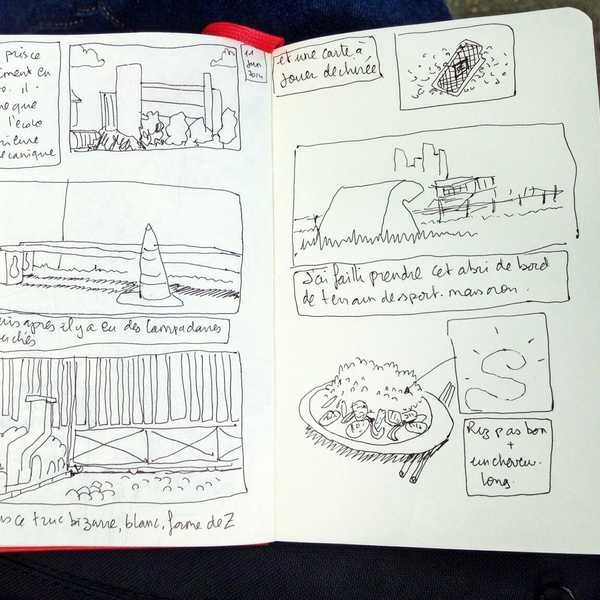 prisce
ment en
il
que
l'école
mécanique
11
Juin
2014
puis après il y a eu des lampadaires
couchés
puis ce truc bizarre, blanc, forme de Z
et une carte à
jouer déchirée
J'ai failli prendre cet abri de bord
de terrain de sport. mais non.
S
Riz pas bon
+
un cheveu
long.